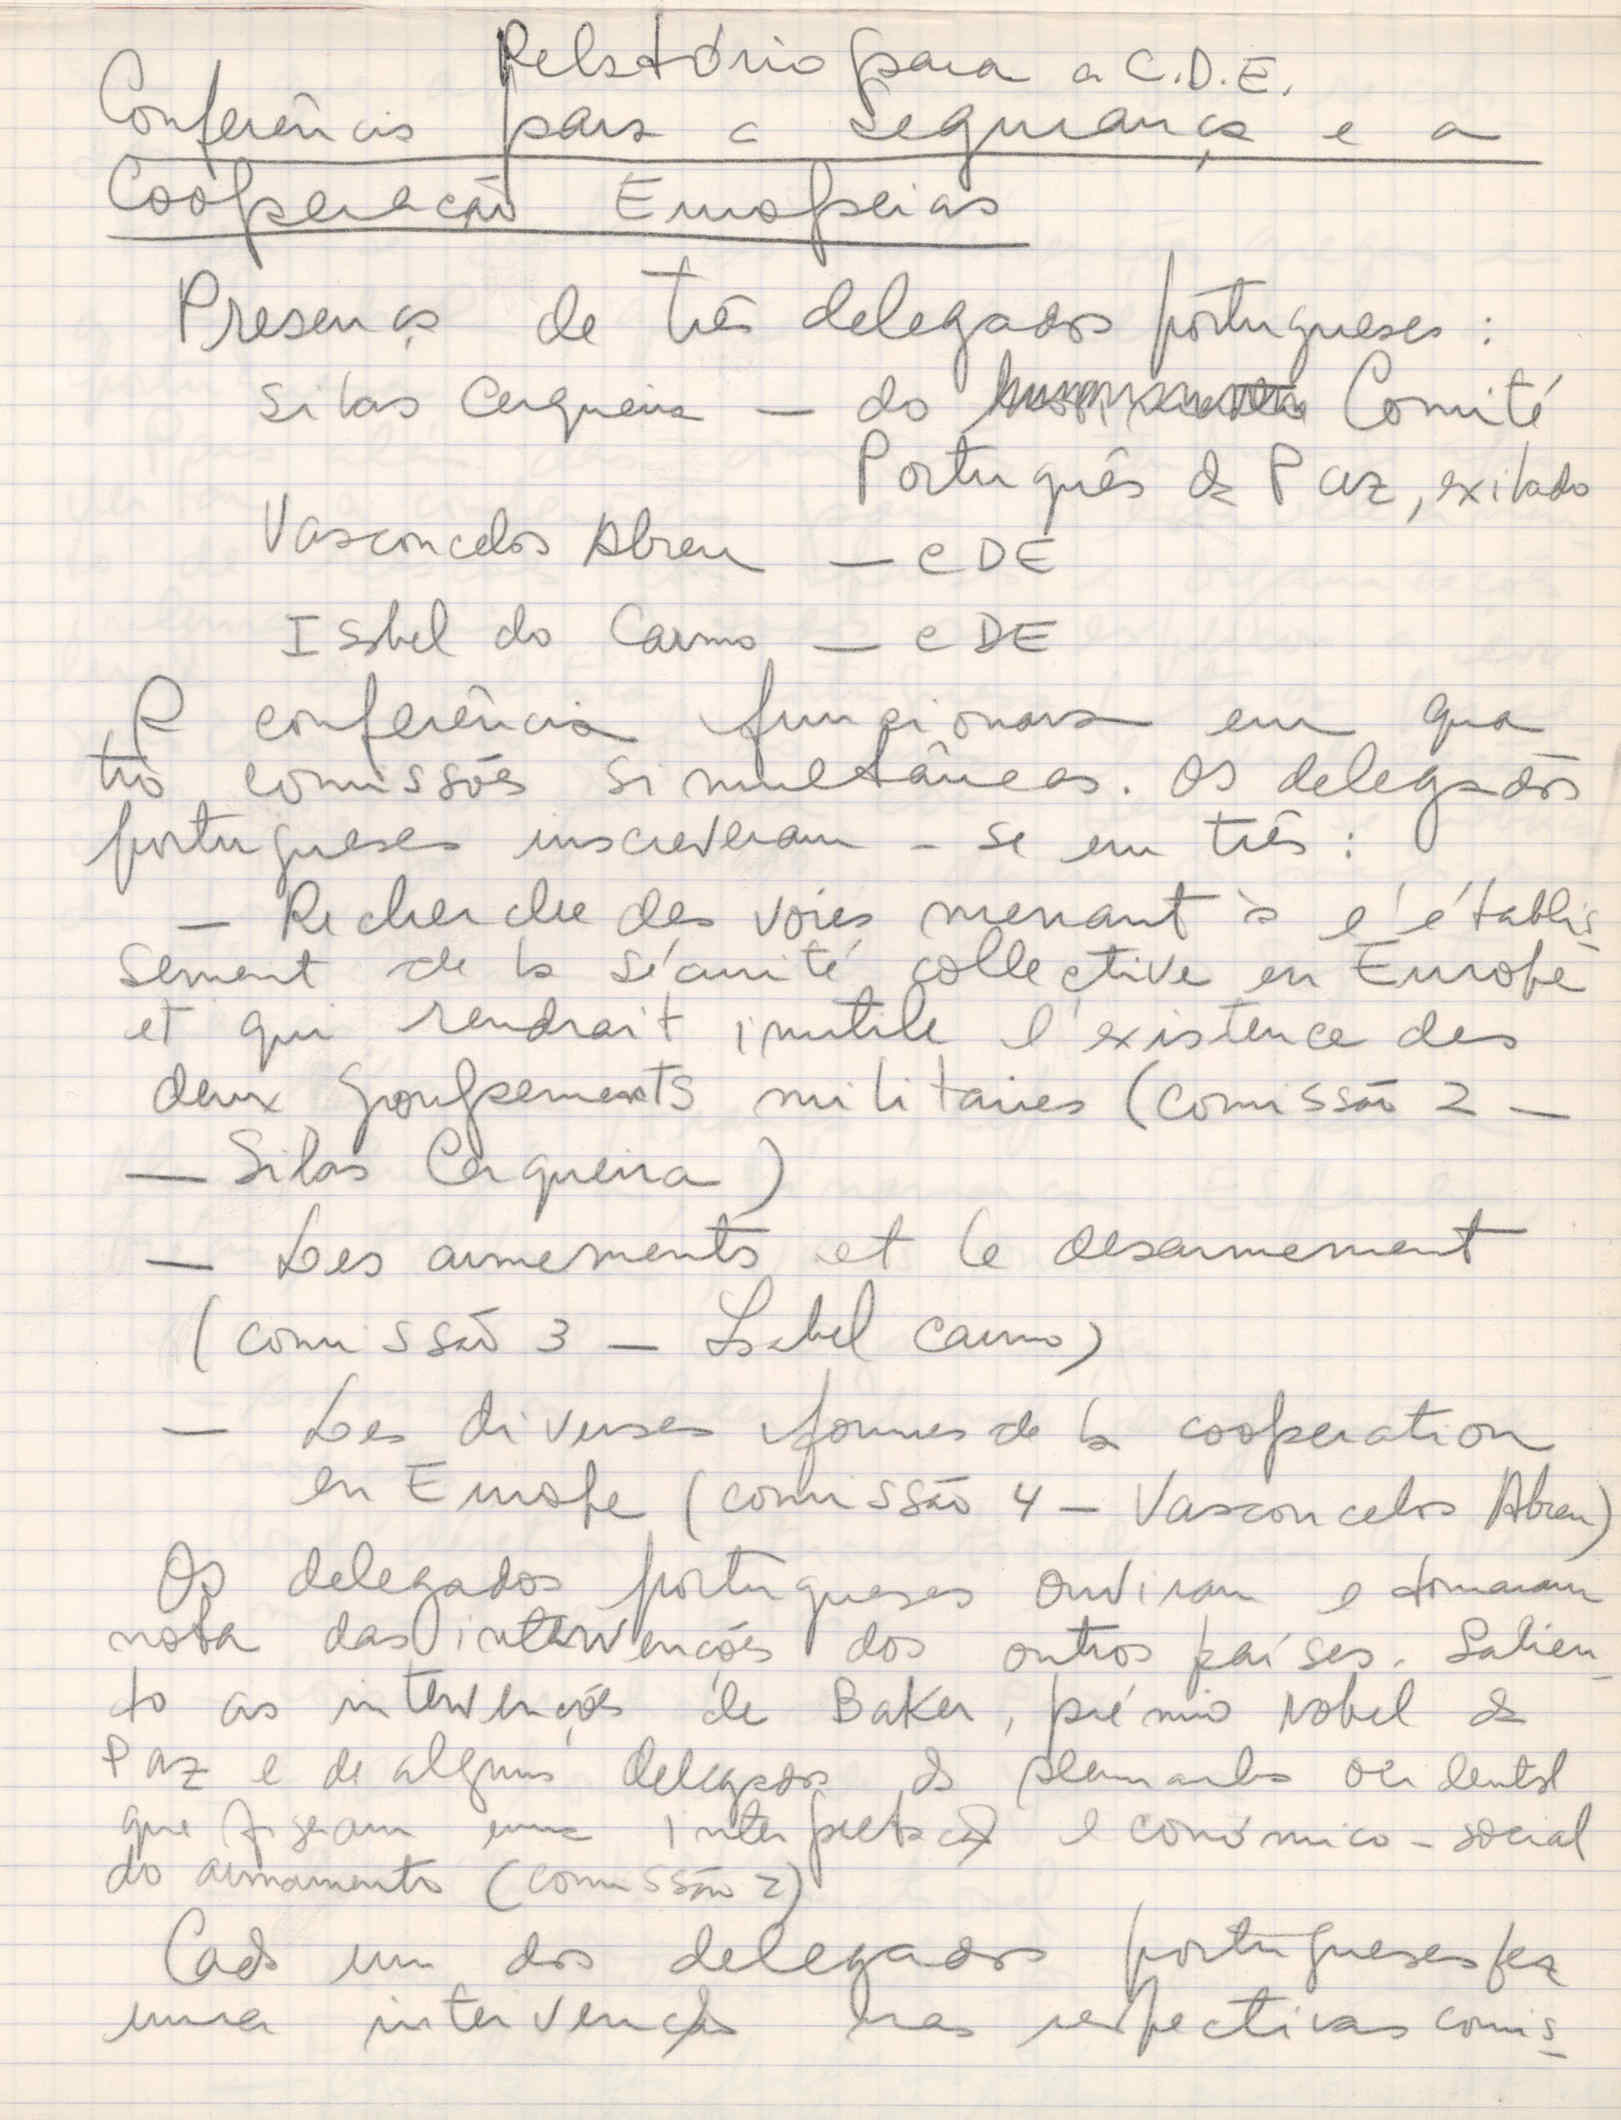 Relatório para a C.D.E.
Conferência para a Segurança e a
Cooperação Europeias
Presença de três delegados portugueses:
Silas Cerqueira — do Comité
Português da Paz, exilado
Vasconcelos Abreu — CDE
Isabel do Carmo — CDE
A conferência funcionava em qua
tro comissões simultâneas. Os delegados
portugueses inscreveram-se em três:
— Recherche des voies menant à l'établis-
sement de la sécurité collective en Europe
et qui rendrait inutile l'existence des
deux groupements militaires (comissão 2 —
— Silas Cerqueira)
— Les armements et le desarmement
(comissão 3 — Isabel Carmo)
— Les diverses formes de la cooperation
en Europe (comissão 4 — Vasconcelos Abreu)
Os delegados portugueses ouviram e tomaram
nota das intervenções dos outros países. Salien-
to as intervenções de Baker, prémio Nobel da
Paz e de alguns delegados da Alemanha ocidental
que fizeram uma interpretação económico-social
do armamento (comissão 2)
Cada um dos delegados portugueses fez
uma intervenção nas respectivas comis-